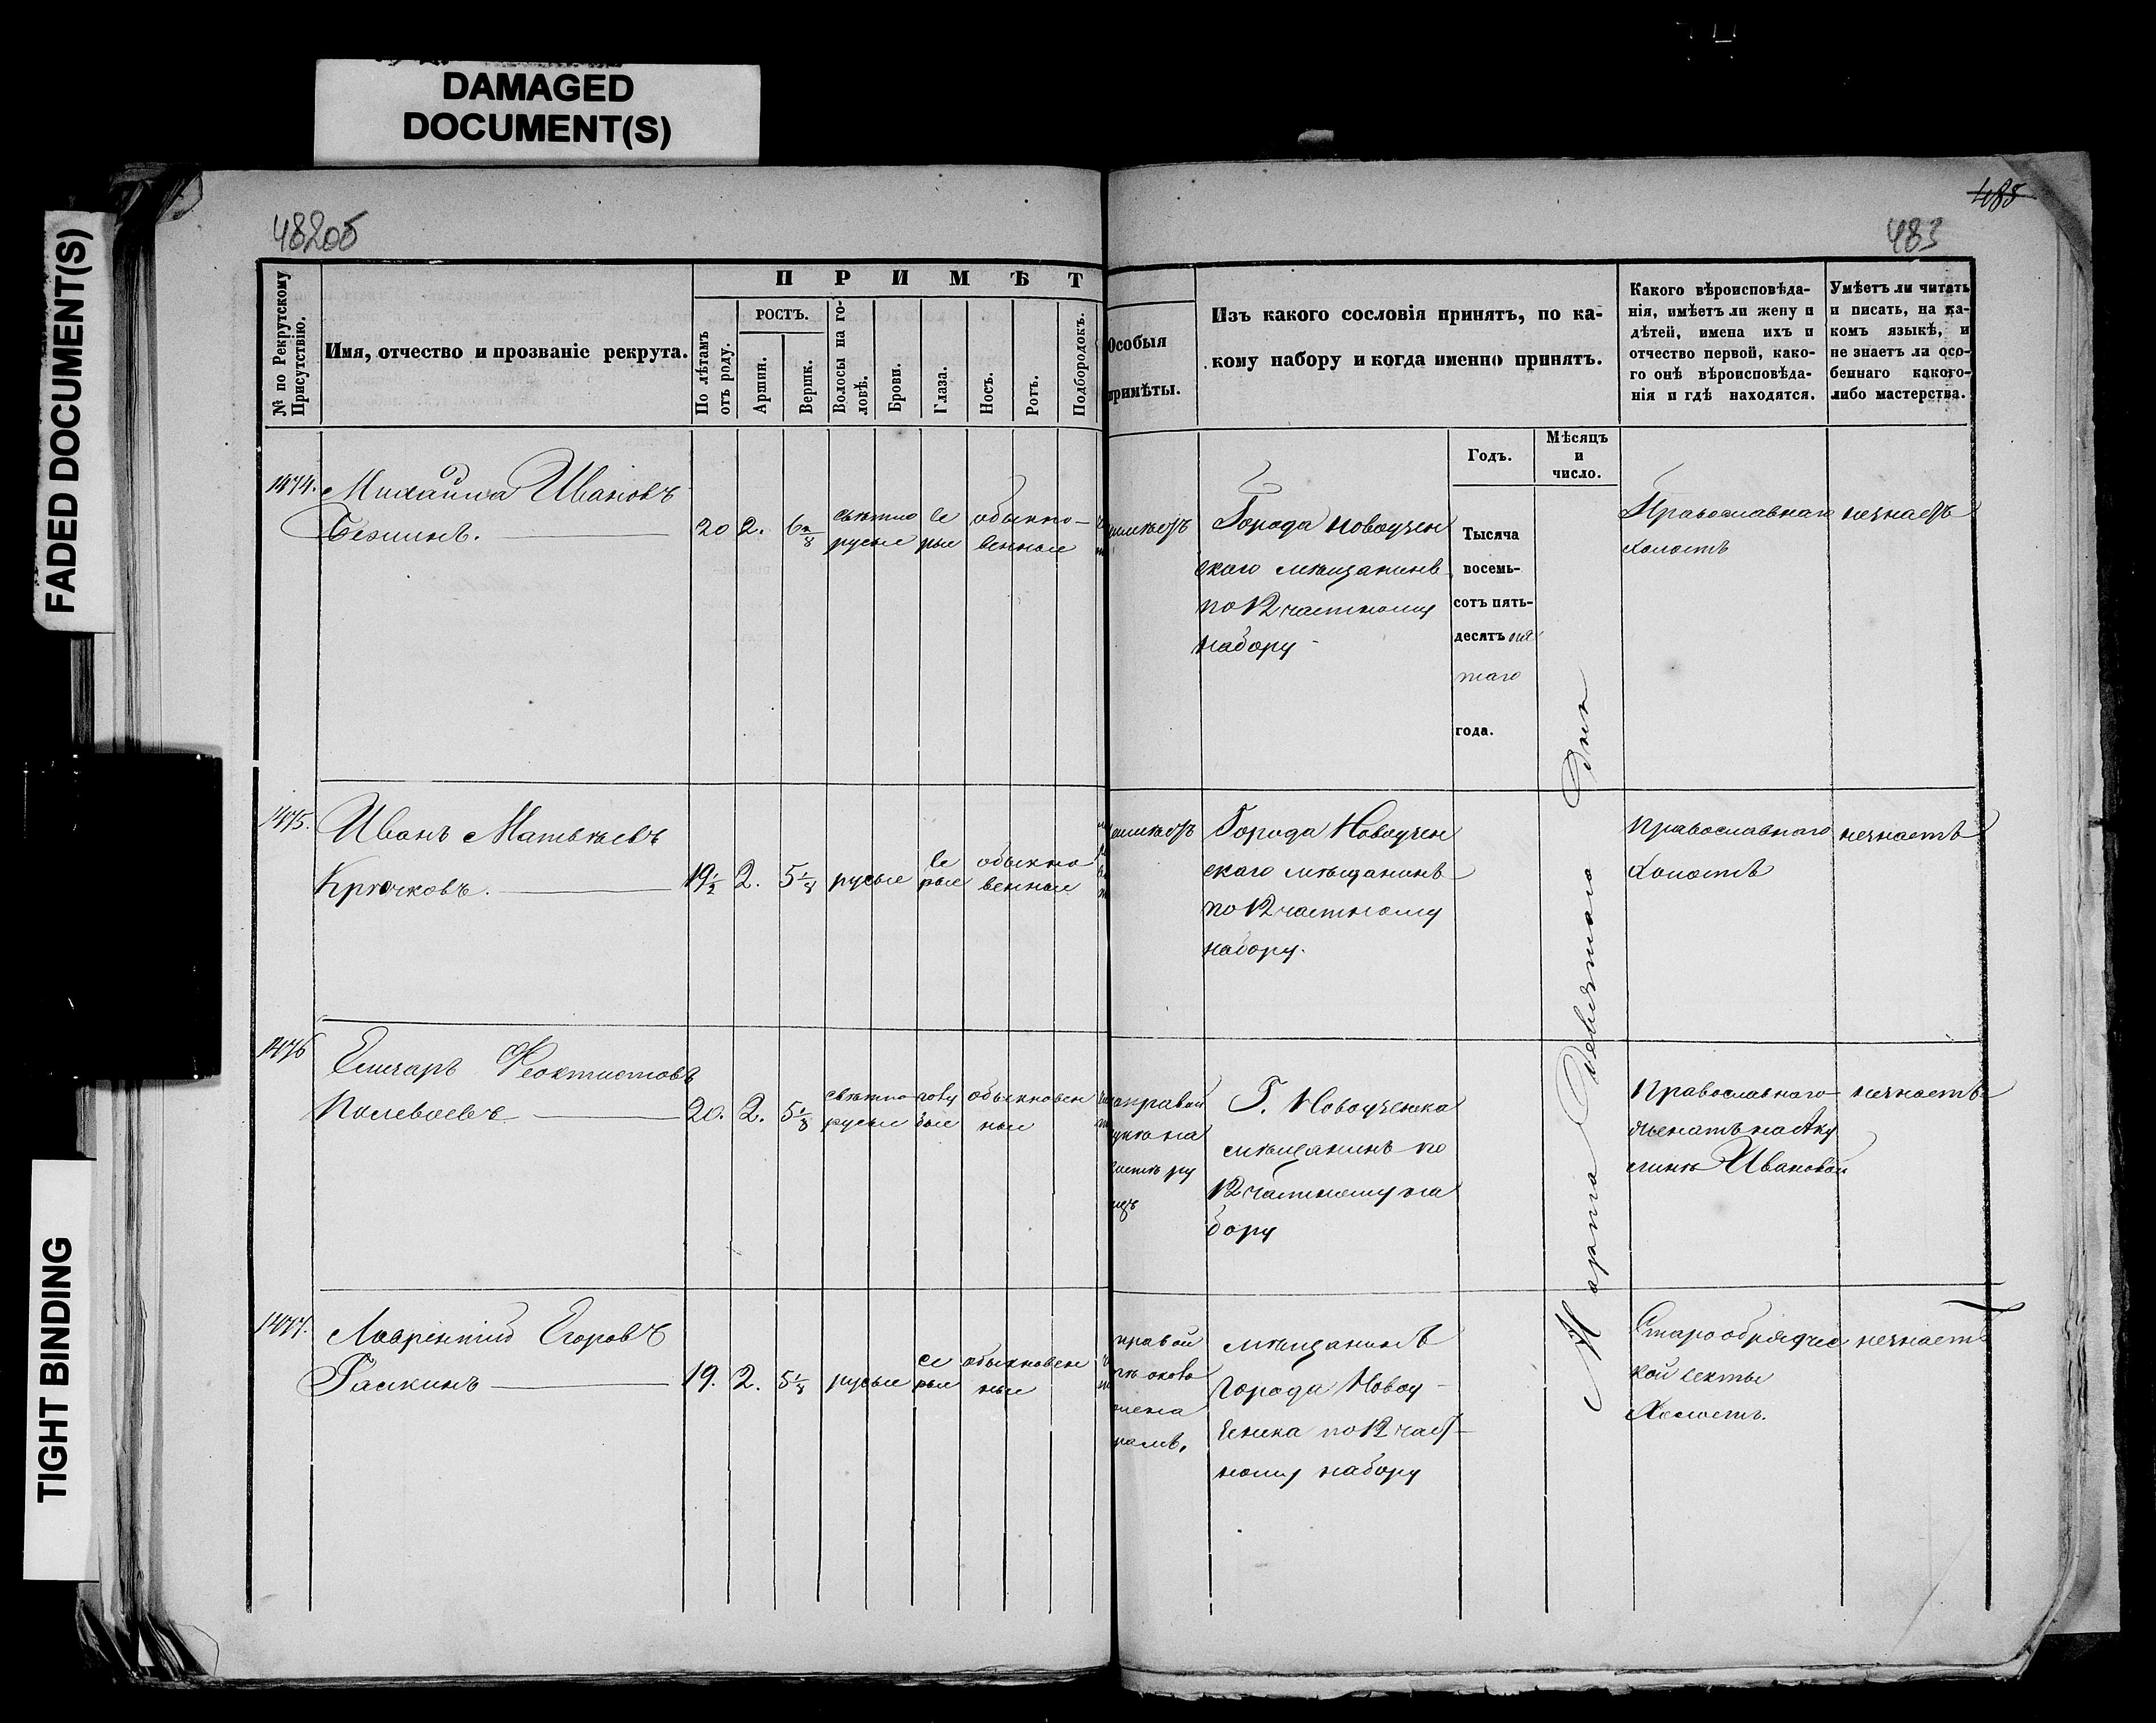 DAMAGED
DOCUMENT(S)
FADED DOCUMENT(S)
TIGHT BINDING
482об
485
483
№ по Рекрутскому
Присутствію.
Имя, отчество и прозваніе рекрута.
ПРИМѢТ
По лѣтамъ
отъ роду.
РОСТЪ.
Аршин.
Вершк.
Волосы на го-
ловѣ.
Брови.
Глаза.
Носъ.
Ротъ.
Подбородокъ.
Особыя
примѣты.
Изъ какого сословія принятъ, по ка-
кому набору и когда именно принятъ.
Какого вѣроисповѣда-
нія, имѣетъ ли жену и
дѣтей, имена ихъ и
отчество первой, како-
го онѣ вѣроисповѣда-
нія и гдѣ находятся.
Умѣетъ ли читать
и писать, на ка-
комъ языкѣ, и
не знаетъ ли осо-
беннаго какого-
либо мастерства.
Годъ.
Мѣсяцъ
и
число.
1474. Михайла Ивановъ
20 2. 6 2/8 свѣтло се обыкно-
русые рые венные
Города Новоузен
скаго мѣщанинъ
по 12 частному
набору
Тысяча
восемь-
сотъ пять-
десятъ пя
таго
года.
Марта Девятаго дня
Православнаго незнаетъ
холостъ
1475. Иванъ Матвѣевъ
Крючковъ. 19 1/2 2. 5 1/8 русые се обыкно
рые венные
Города Новоузен
скаго мѣщанинъ
по 12 частному
набору.
Православнаго незнаетъ
холостъ
1476 Елизаръ Феоктистовъ
Полеваевъ 20. 2. 5 1/8 свѣтло голу обыкновен
русые бые ные
правой
Г. Новоузенска
мѣщанинъ по
12 частному на
бору
Православнаго незнаетъ
женатъ на Аку
линѣ Ивановой
1477. Лаврентій Егоровъ
19. 2. 5 1/8 русые се обыкновен
рые ные
правой
мѣщанинъ
города Новоу-
зенска по 12 част-
ному набору
Старообрядчес незнаетъ
кой секты
Холостъ.